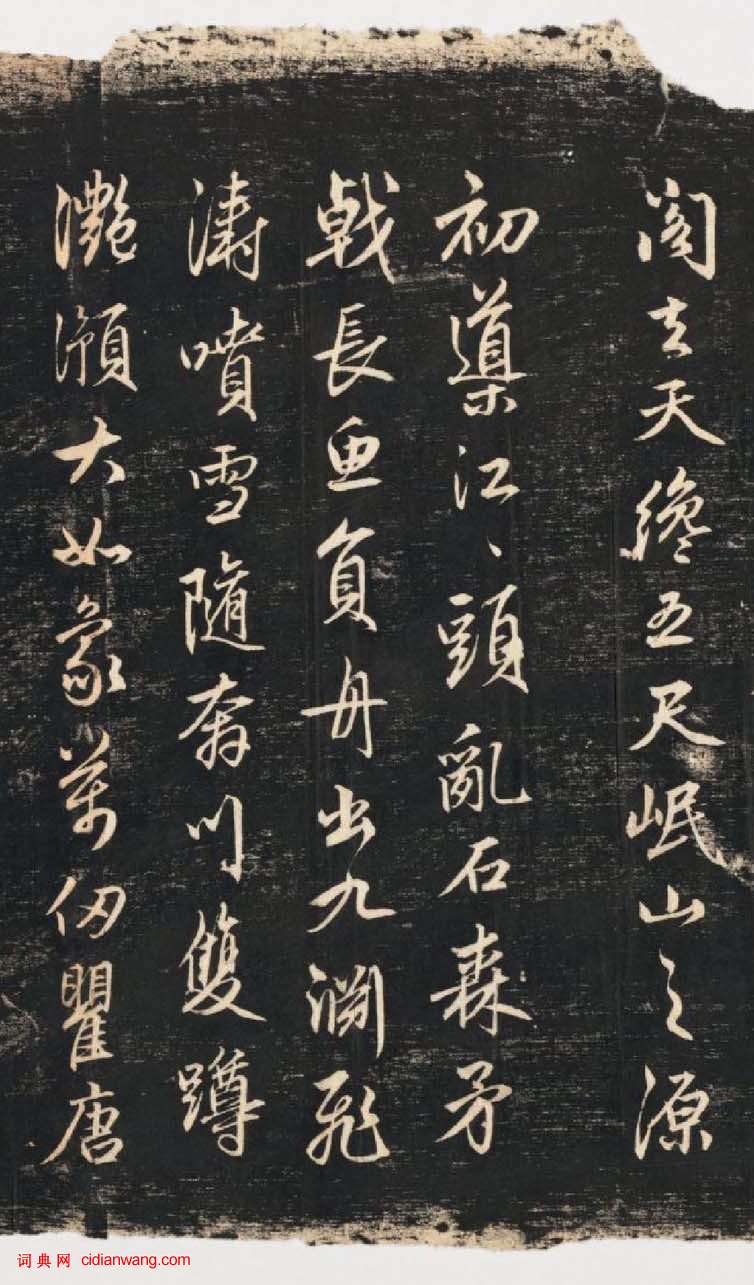 阁去天纔五尺岷山之源
初導江、頭亂石森矛
戟長魚負舟出九淵飛
濤噴雪隨奔川雙蹲
灩澦大如象萬仞瞿唐
词典网 cidianwang.com